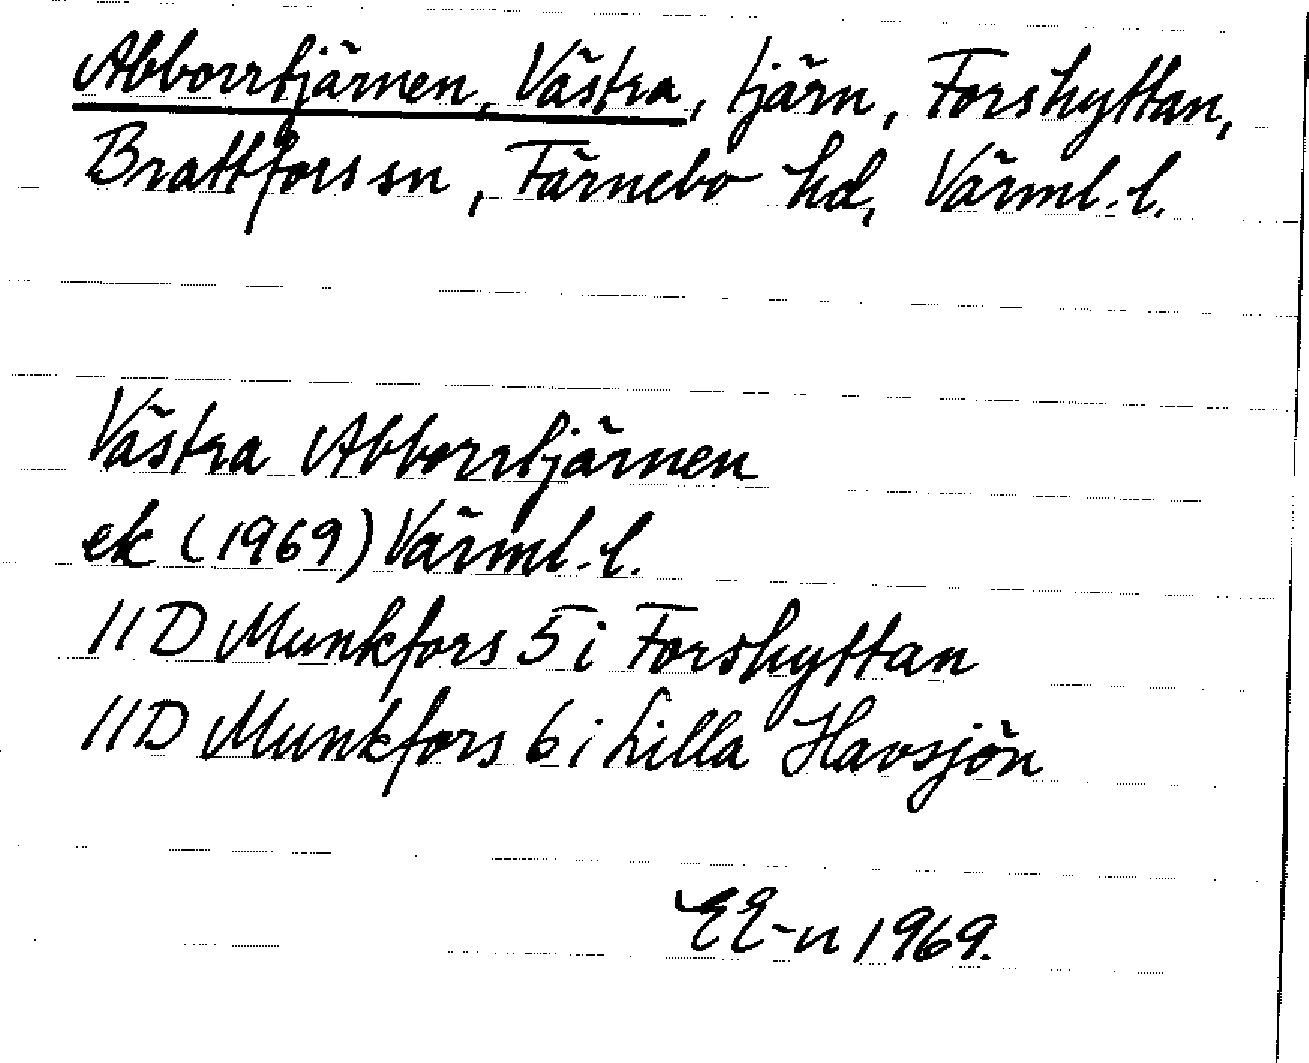 Abborrtjärnen, Västra, tjärn, Forshyttan,
Brattfors sn, Färnebo hd, Värml. l.
Västra Abborrtjärnen
ek (1969) Värml. l.
11D Munkfors 5i Forshyttan
11D Munkfors 6i Lilla Havsjön
EE-n 1969.